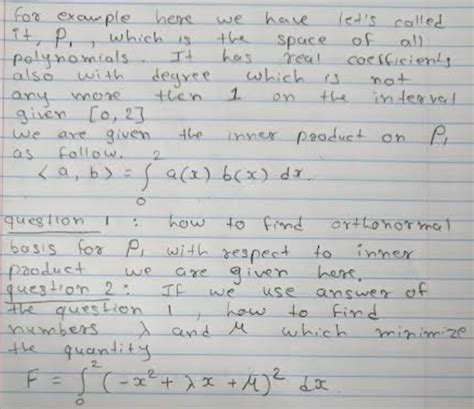 for example here we have let's called
it, P₁, which is the space of all
polynomials. It has real coefficients
also with degree which is not
any more then 1 on the interval
given [0, 2]
We are given the inner product on P₁
as follow.
⟨a, b⟩ = ∫₀² a(x) b(x) dx.
question 1 : how to find orthonormal
basis for P₁ with respect to inner
product we are given here.
question 2 : If we use answer of
the question 1, how to find
numbers λ and μ which minimize
the quantity
F = ∫₀² (-x² + λx + μ)² dx.